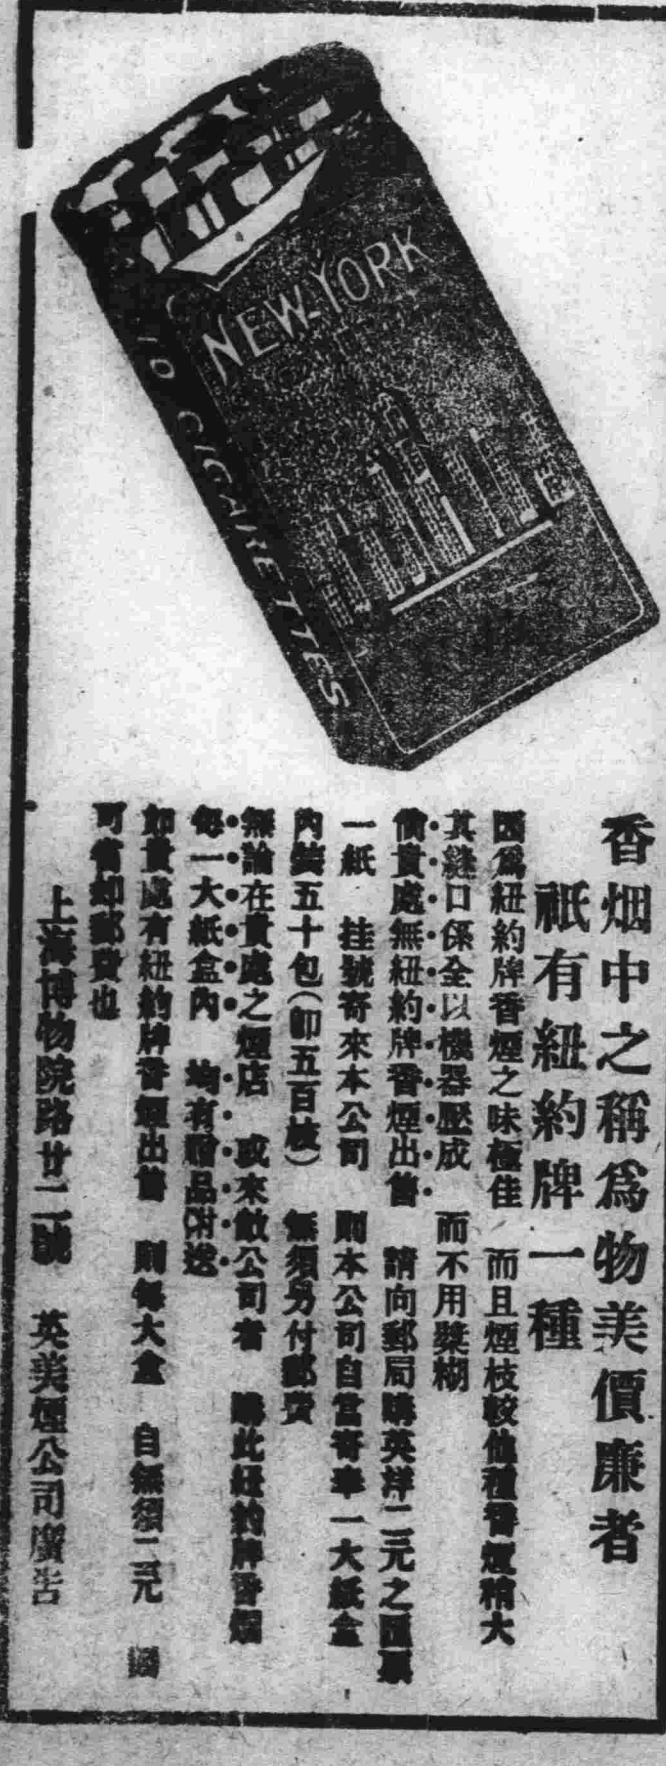 NEW-YORK
10 CIGARETTES
香烟中之稱爲物美價廉者
祇有紐約牌一種
因爲紐約牌香煙之味極佳 而且煙枝較他種香煙稍大
其縫口係全以機器壓成 而不用漿糊
倘貴處無紐約牌香煙出售 請向郵局購英洋二元之匯票
一紙 挂號寄來本公司 則本公司自當寄奉一大紙盒
內裝五十包(卽五百枝) 無須另付郵費
無論在貴處之煙店 或來敝公司者 購此紐約牌香烟
每一大紙盒內 均有贈品附送
如貴處有紐約牌香煙出售 則每大盒 自無須二元
可省却郵費也
上海博物院路廿二號 英美煙公司廣吿